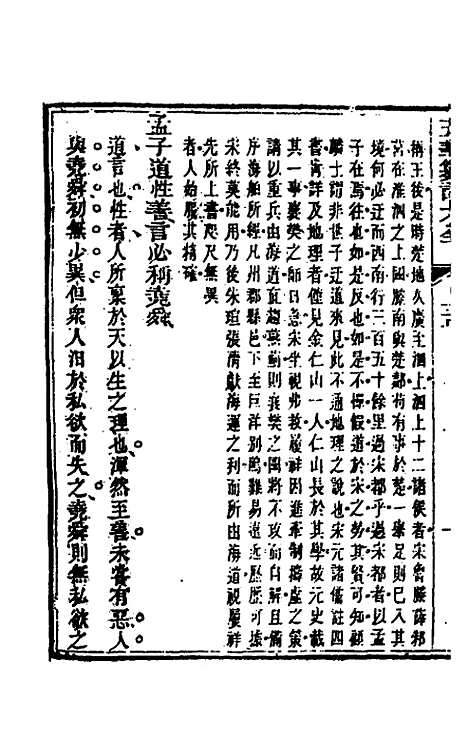 稱王後是時楚地久廣至泗上泗上十二諸侯者宋魯滕薛邾
莒在淮泗之上國滕南與楚鄰苟有事於楚一舉足則已入其
境何必迂而西南行三百五十餘里過宋都乎過宋都者以孟
子在焉往也如是反也如是不憚假道於宋之勞其賢可知顧
麟士謂非世子迂道來見此不通地理之說也宋元諸儒註四
書者詳及地理者僅見金仁山一人仁山長於其學故元史載
其一事襄樊之師日急宋坐視弗救履祥因進牽制擣虛之策
請以重兵由海道直趨燕薊則襄樊之圍將不攻而自解且備
序海舶所經凡州郡縣邑下至巨洋別隝難易遠近歷歷可據
宋終莫能用乃後朱瑄張清獻海運之利而所由海道視履祥
先所上書咫尺無異
者人始服其精確
孟子道性善言必稱堯舜
道言也性者人所稟於天以生之理也渾然至善未嘗有惡人
與堯舜初無少異但衆人汨於私欲而失之堯舜則無私欲之